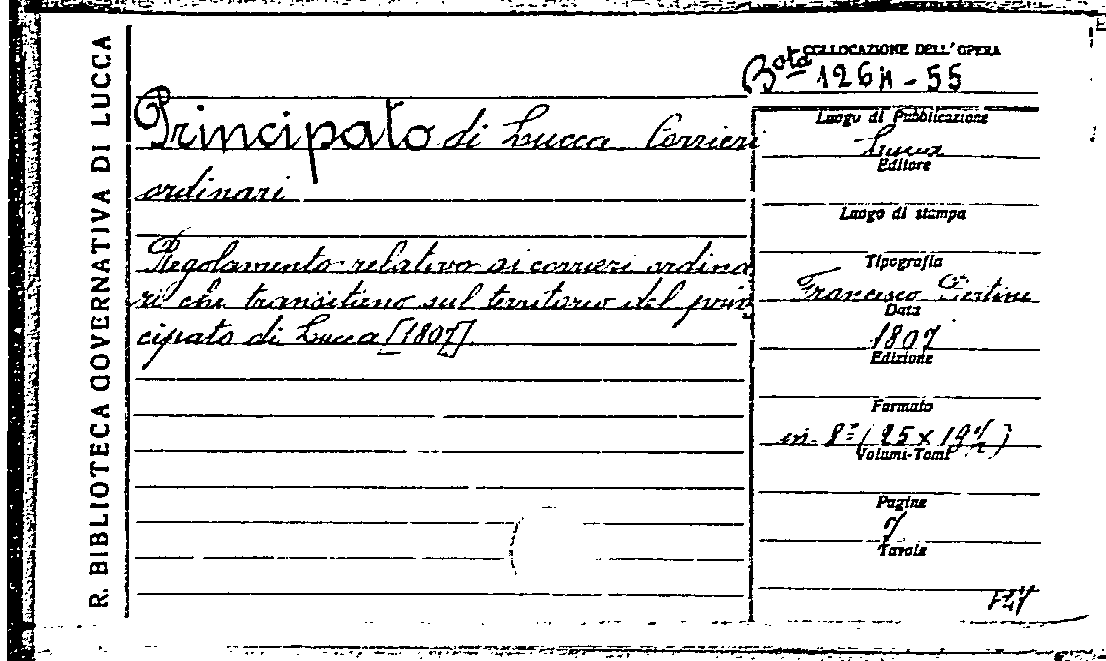 R. BIBLIOTECA GOVERNATIVA DI LUCCA
Principato di Lucca Corrieri
ordinari
Regolamento relativo ai corrieri ordina
ri che transitano sul territorio del prin
cipato di Lucca [1807]
COLLOCAZIONE DELL'OPERA
Bota 126 - 55
Luogo di Pubblicazione
Lucca
Editore
Luogo di stampa
Tipografia
Francesco Bertini
Data
1807
Edizione
Formato
in 8° (25 x 19 ½)
Volumi-Tomi
Pagine
7
Tavole